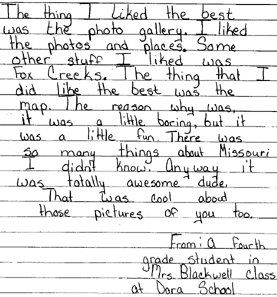 The thing I liked the best
was the photo gallery. I liked
the photos and places. Some
other stuff I liked was
Fox Creeks. The thing that I
did like the best was the
map. The reason why was,
it was a little boring, but it
was a little fun. There was
so many things about Missouri
I didn't know. Anyway it
was totally awesome dude.
That was cool about
those pictures of you too.
From: a fourth
grade student in
Mrs. Blackwell class
at Dora School